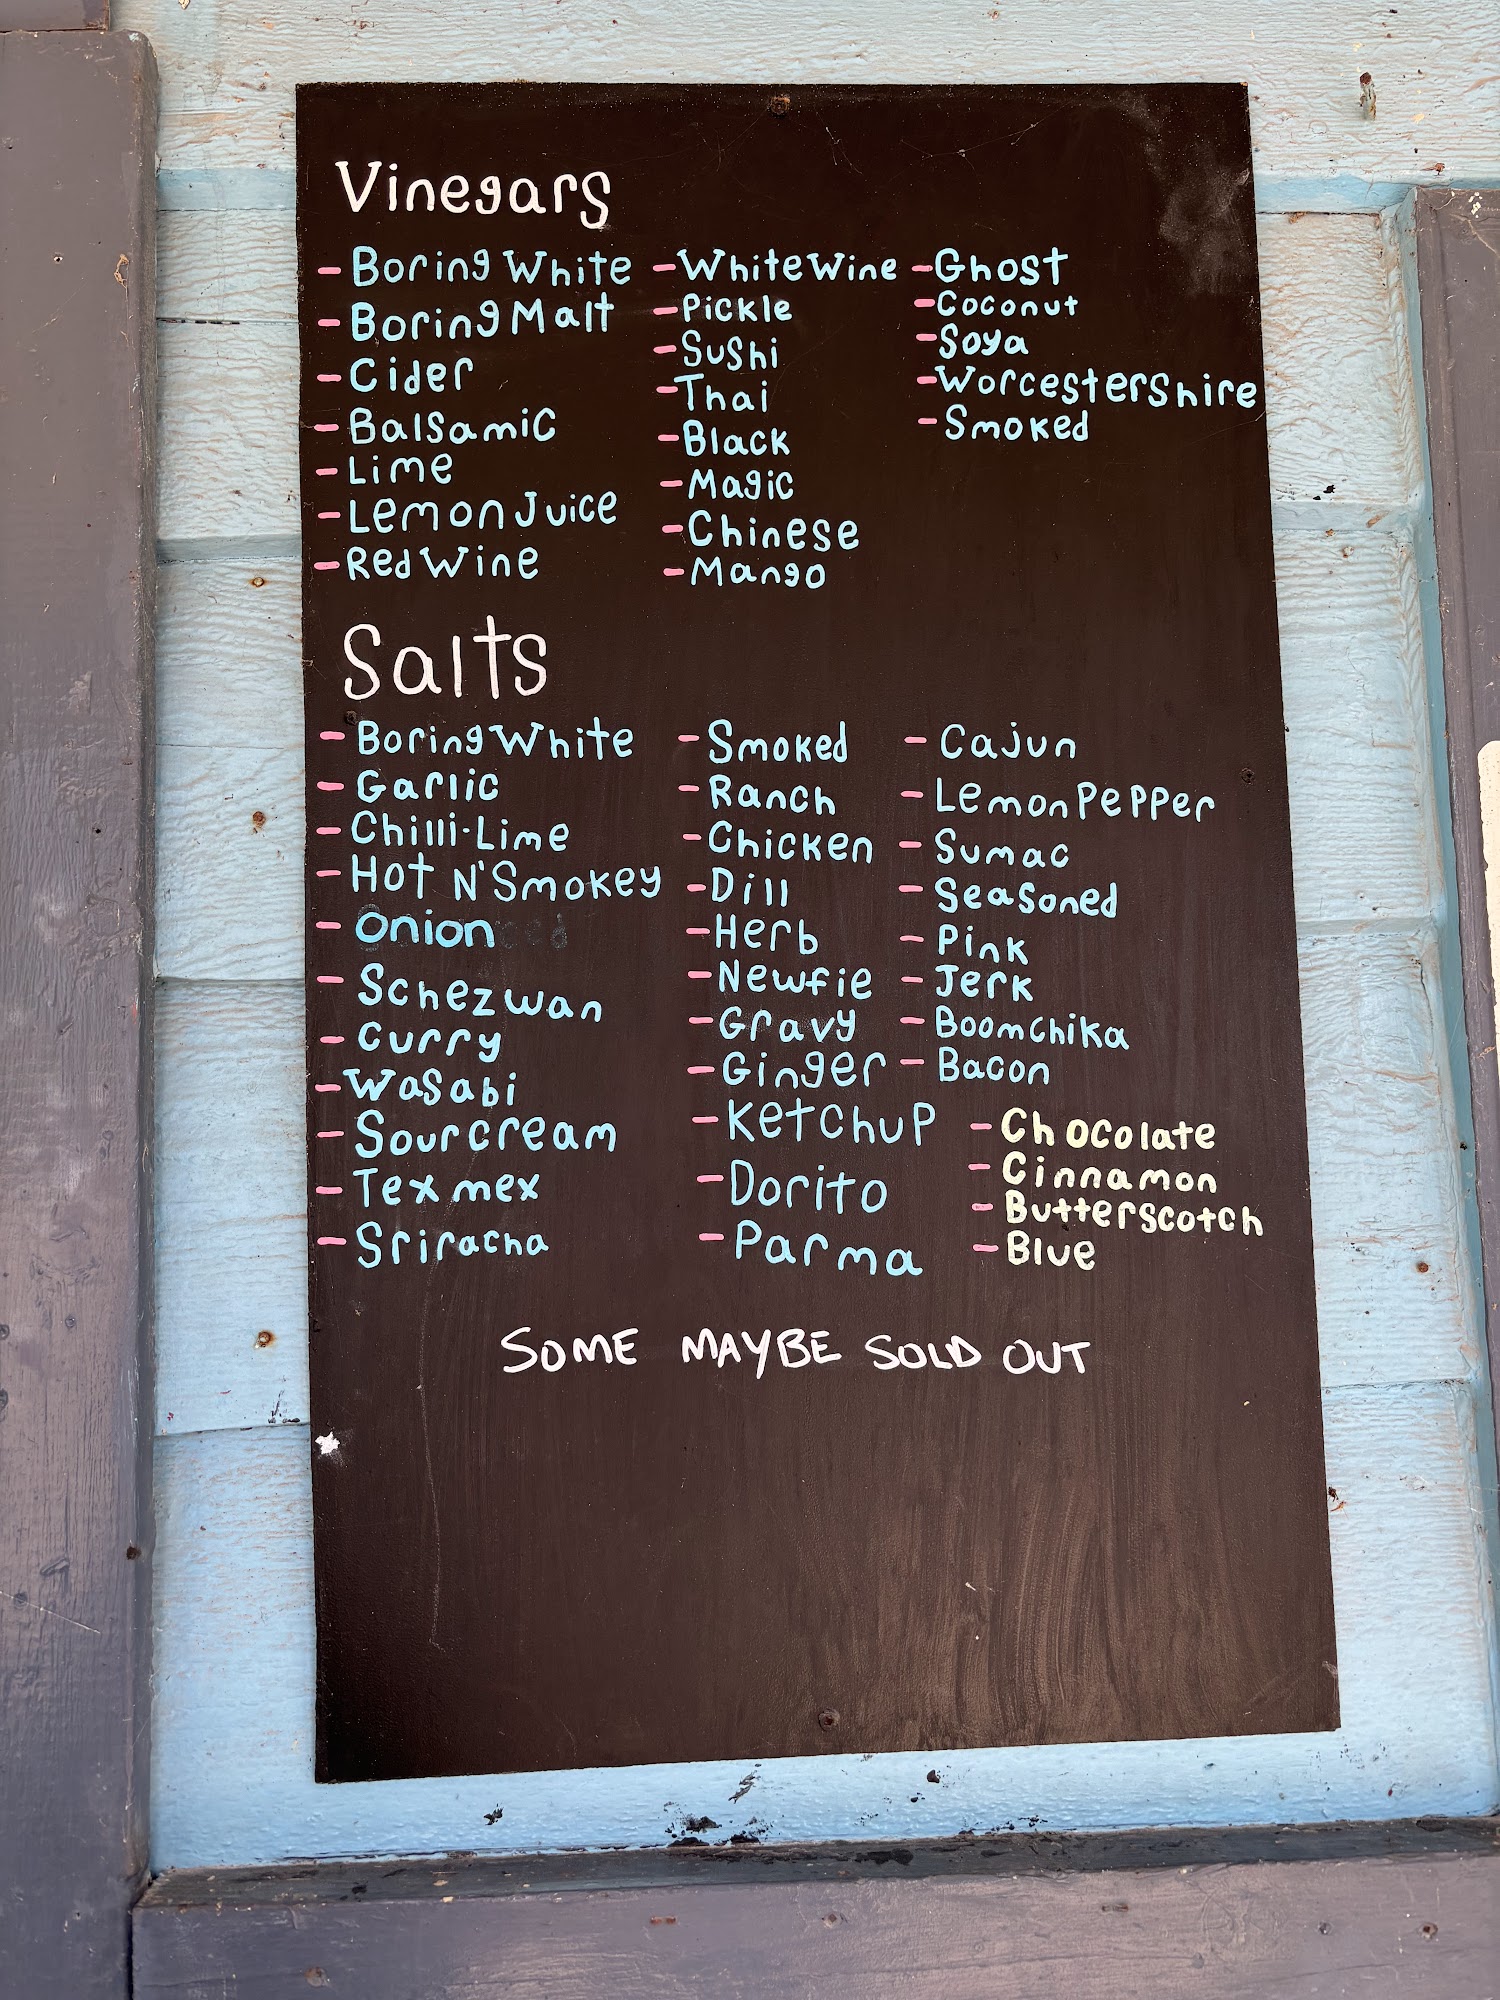 Vinegars
- Boring White
- Boring Malt
- Cider
- Balsamic
- Lime
- Lemon Juice
- Red Wine
- White Wine
- Pickle
- Sushi
- Thai
- Black
- Magic
- Chinese
- Mango
- Ghost
- Coconut
- Soya
- Worcestershire
- Smoked
Salts
- Boring White
- Garlic
- Chilli-Lime
- Hot N' Smokey
- Onion
- Schezwan
- Curry
- Wasabi
- Sour cream
- Tex mex
- Sriracha
- Smoked
- Ranch
- Chicken
- Dill
- Herb
- Newfie
- Gravy
- Ginger
- Ketchup
- Dorito
- Parma
- Cajun
- Lemon Pepper
- Sumac
- Seasoned
- Pink
- Jerk
- Boomchika
- Bacon
- Chocolate
- Cinnamon
- Butterscotch
- Blue
SOME MAYBE SOLD OUT